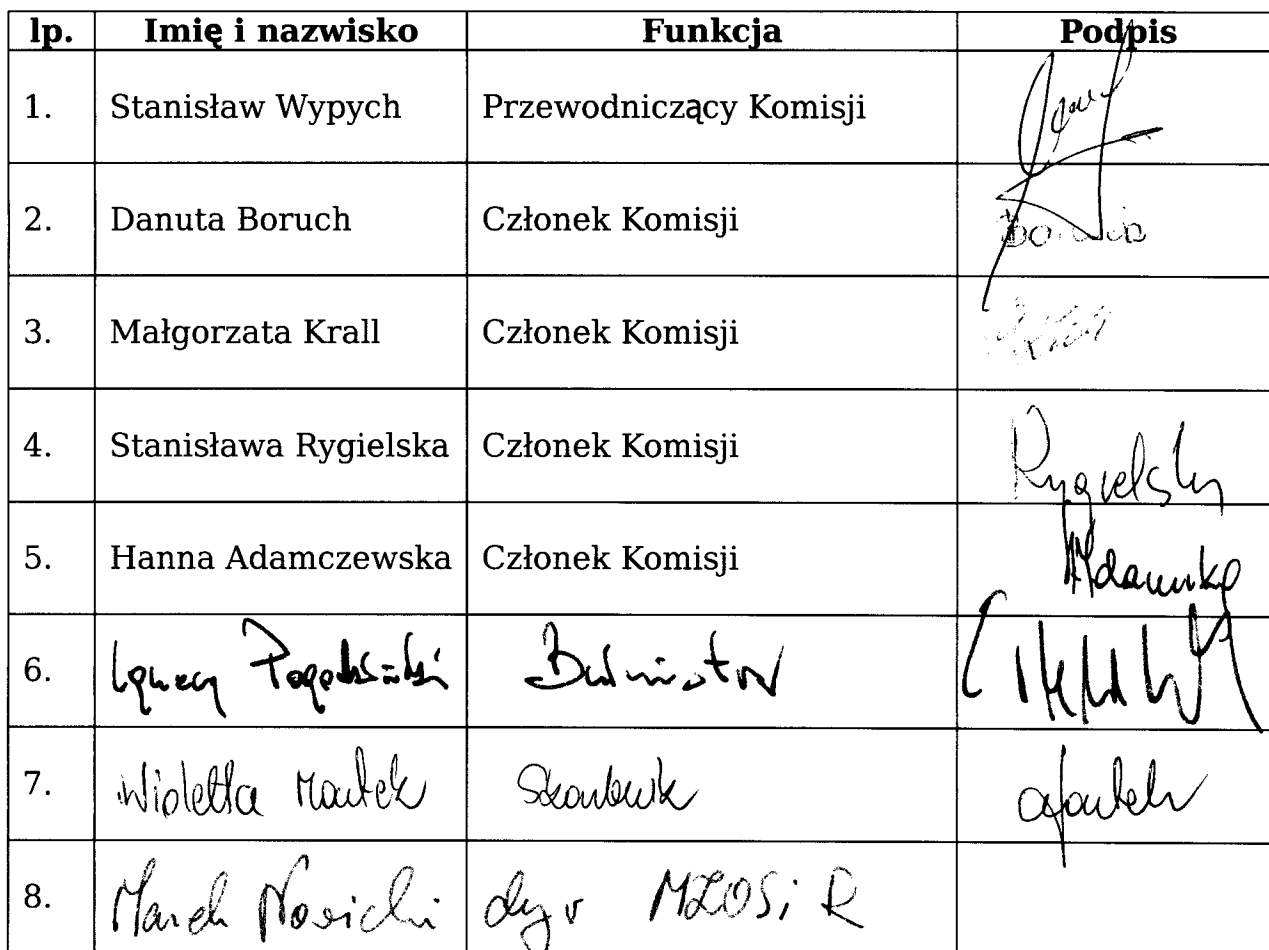 lp. Imię i nazwisko Funkcja Podpis
1. Stanisław Wypych Przewodniczący Komisji
2. Danuta Boruch Członek Komisji
3. Małgorzata Krall Członek Komisji
4. Stanisława Rygielska Członek Komisji
5. Hanna Adamczewska Członek Komisji
6. Ignacy Burmistrz
7. Wioletta Skarbnik
8. Marek Nosicki dyr MZOSiR